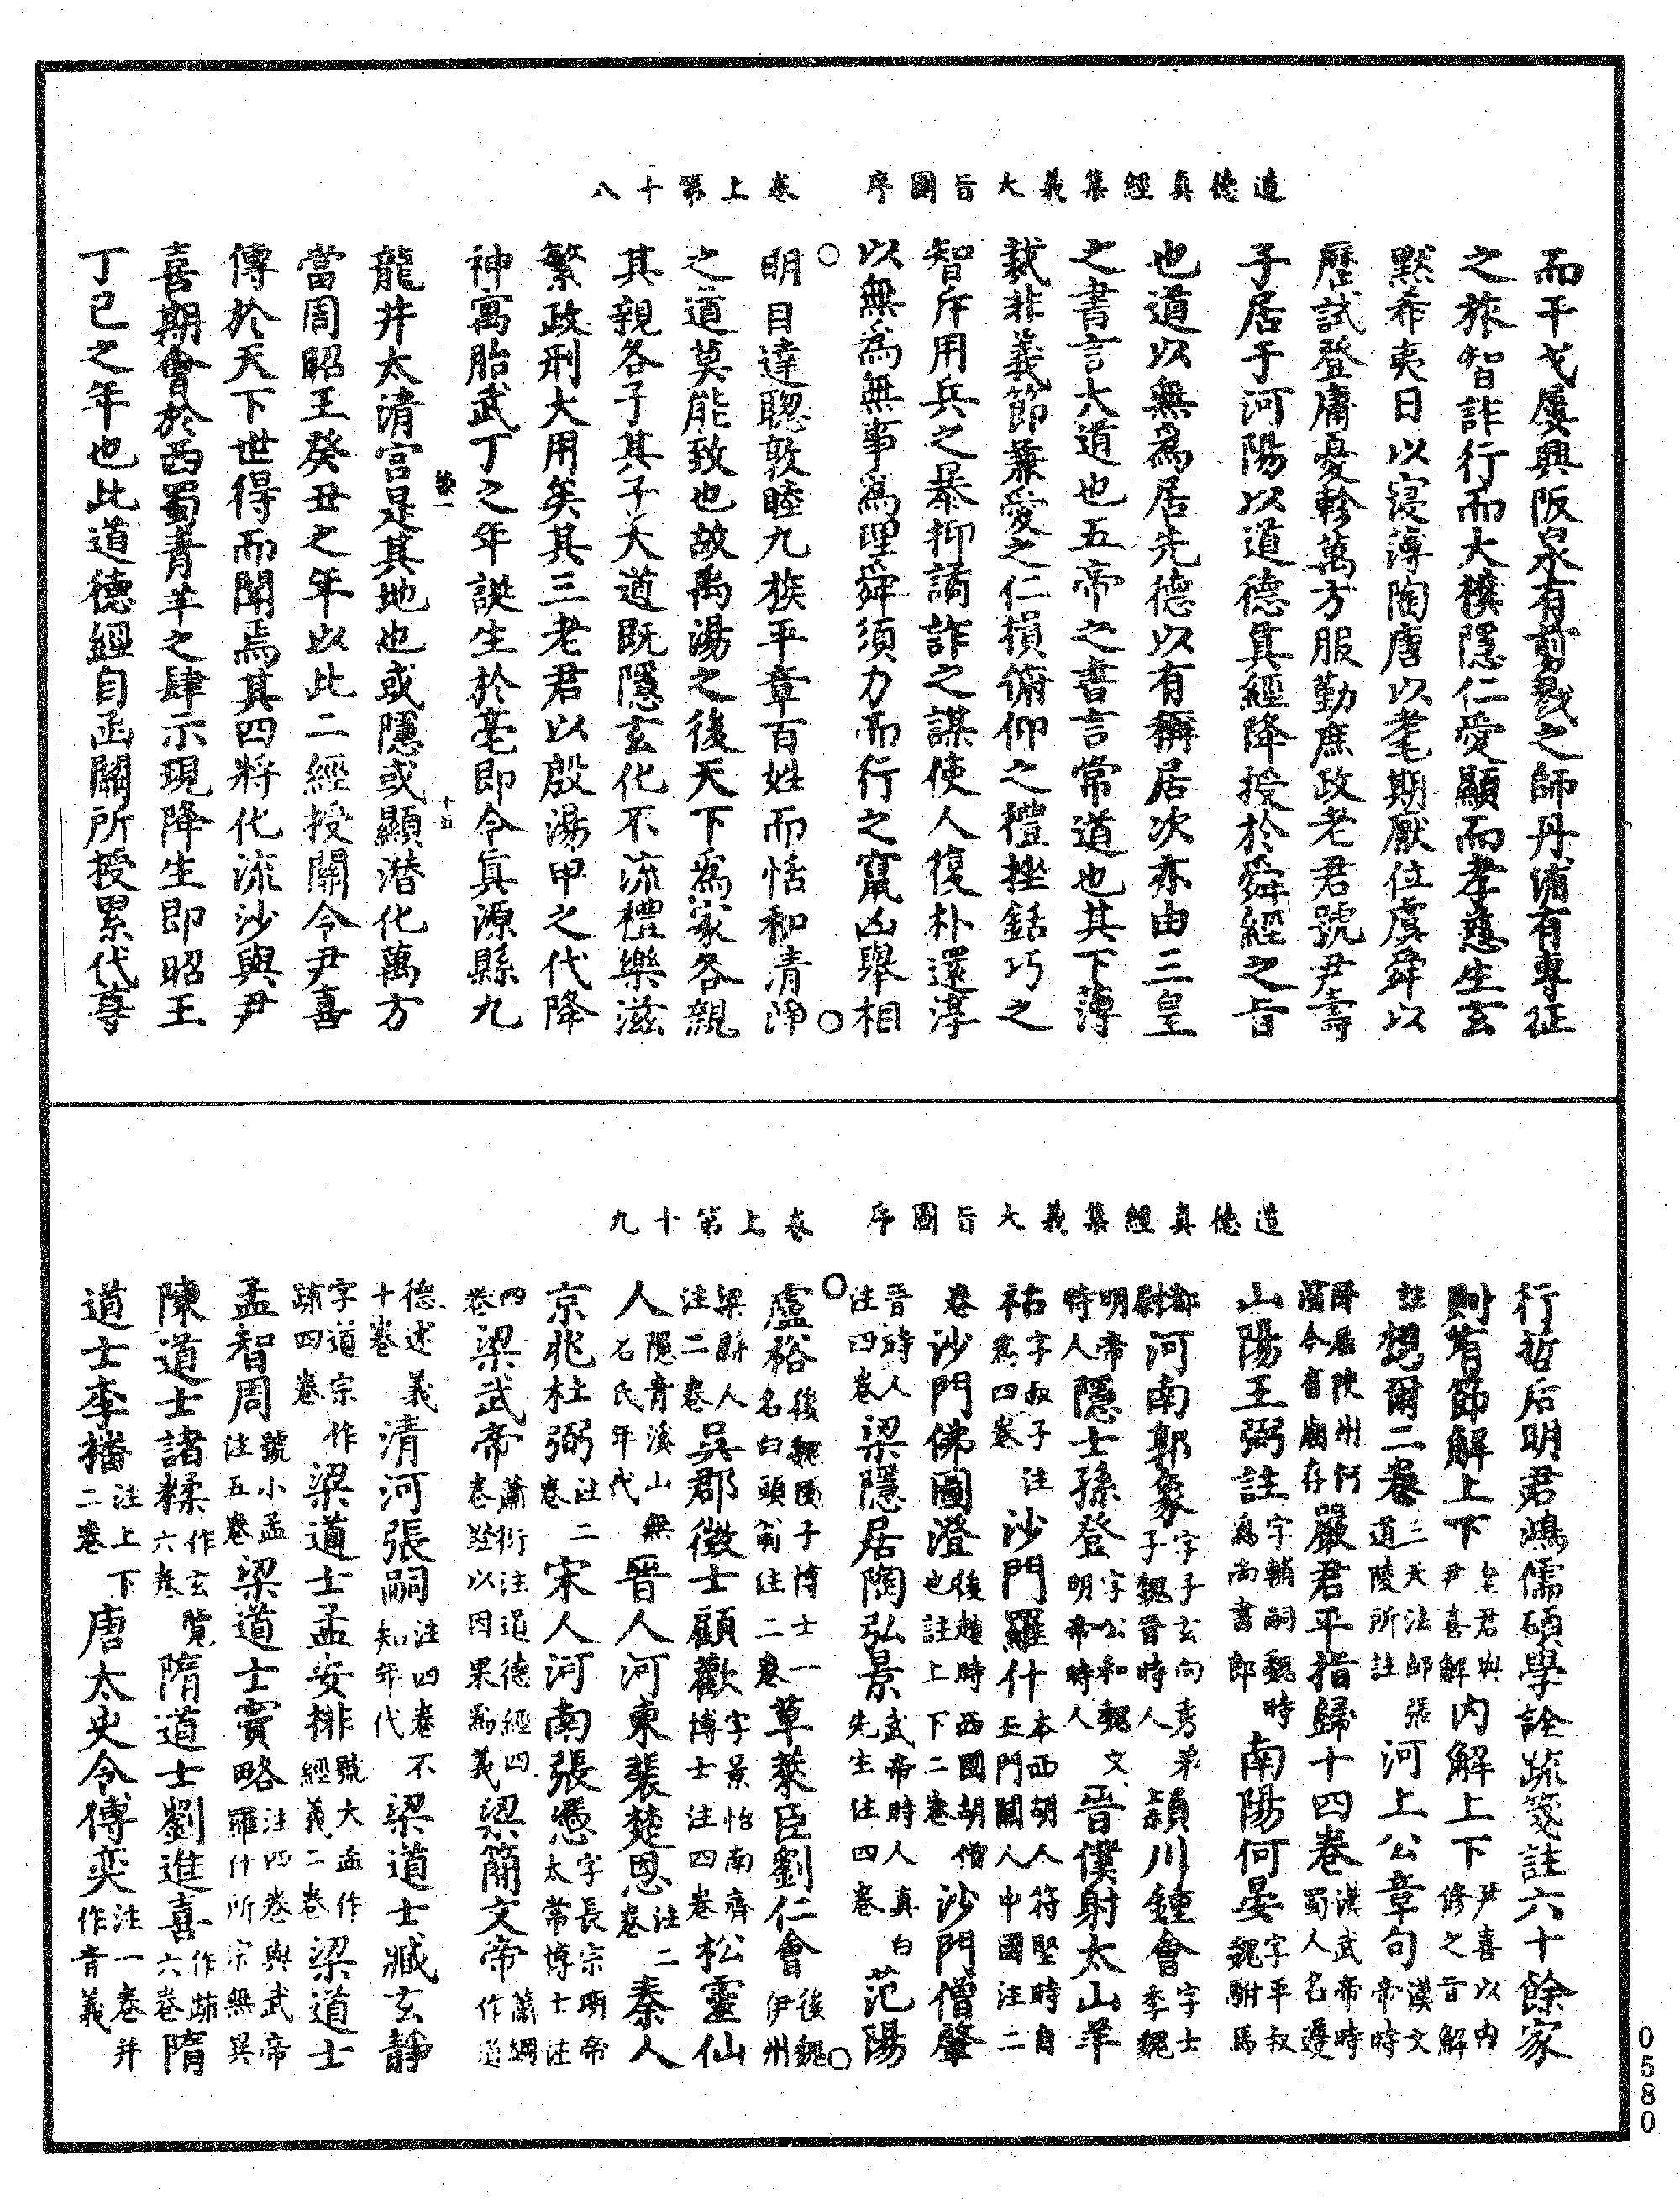 道德真經集義大旨圖序　卷上第十八
而干戈屢興阪泉有剪戮之師丹浦有專征
之旅智詐行而大樸隱仁愛顯而孝慈生玄
默希夷日以寖薄陶唐以耄期厭位虞舜以
歷試登庸憂軫萬方服勤庶政老君號尹壽
子居于河陽以道德真經降授於舜經之旨
也道以無為居先德以有稱居次亦由三皇
之書言大道也五帝之書言常道也其下薄
裁非義節兼愛之仁損俯仰之禮挫銛巧之
智斥用兵之暴抑譎詐之謀使人復朴還淳
以無為無事為理舜須力而行之竄凶舉相
明目達聰敦睦九族平章百姓而恬和清淨
之道莫能致也故禹湯之後天下為家各親
其親各子其子大道既隱玄化不流禮樂滋
繁政刑大用矣其三老君以殷湯甲之代降
神寓胎武丁之年誕生於亳即今真源縣九
龍井太清宮是其地也或隱或顯潛化萬方
當周昭王癸丑之年以此二經授關令尹喜
傳於天下世得而聞焉其四將化流沙與尹
喜期會於西蜀青羊之肆示現降生即昭王
丁巳之年也此道德經自函關所授累代尊
道德真經集義大旨圖序　卷上第十九
行哲后明君鴻儒碩學詮疏箋註六十餘家
則有節解上下老君與尹喜解內解上下尹喜以內修之旨解
註想爾二卷三天法師張道陵所註河上公章句漢文帝時
降居陝州河濱今有廟存嚴君平指歸十四卷漢武帝時蜀人名遵
山陽王弼註字輔嗣魏時為尚書郎南陽何晏字平叔魏駙馬
都尉河南郭象字子玄向秀弟子魏晉時人潁川鍾會字士季魏
明帝時人隱士孫登字公和魏文明帝時人晉僕射太山羊
祜字叔子注為四卷沙門羅什本西胡人符堅時自玉門關入中國注二
卷沙門佛圖澄後趙時西國胡僧也註上下二卷沙門僧肇
晉時人注四卷梁隱居陶弘景武帝時人真白先生注四卷范陽
盧裕後魏國子博士一名白頭翁注二卷草萊臣劉仁會後魏伊州
梁縣人注二卷吳郡徵士顧歡字景怡南齊博士注四卷松靈仙
人隱青溪山無石氏年代晉人河東裴楚恩注二卷秦人
京兆杜弼注二卷宋人河南張憑字長宗明帝太常博士注
四卷梁武帝蕭衍注道德經四卷證以因果為義梁簡文帝蕭綱作道
德述義十卷清河張嗣注四卷不知年代梁道士臧玄靜
字道宗作疏四卷梁道士孟安排號大孟作經義二卷梁道士
孟智周號小孟注五卷梁道士竇略注四卷與武帝羅什所宗無異
陳道士諸糅作玄覽六卷隋道士劉進喜作疏六卷隋
道士李播注上下二卷唐太史令傅奕注二卷并作音義
0580